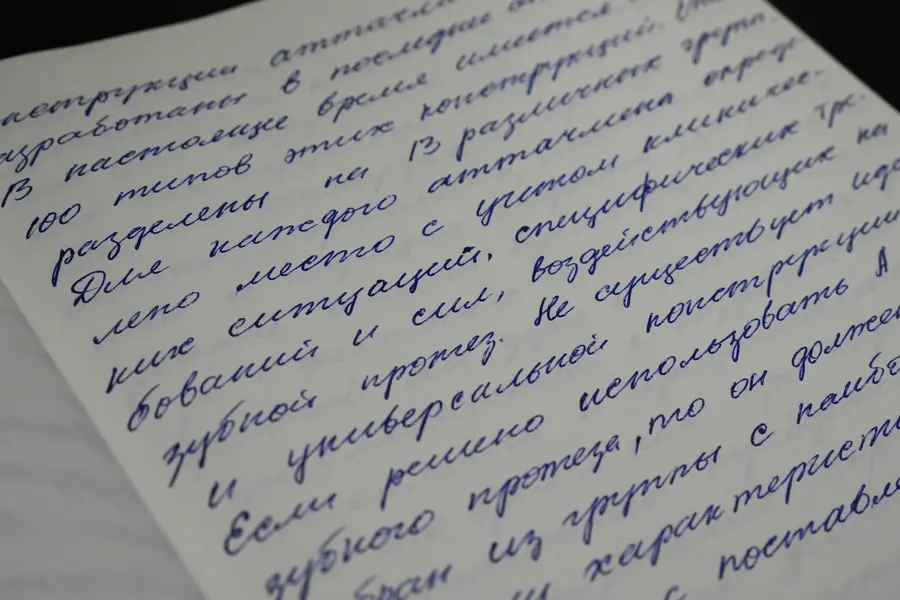 нструкции аттачме
азработаны в последние
В настоящее время имеется
100 типов этих конструкций. Они
разделены на 13 различных групп.
Для каждого аттачмена опреде-
лено место с учетом клиничес-
ких ситуаций, специфических тре-
бований и сил, воздействующих на
зубной протез. Не существует иде
и универсальной конструкции
Если решено использовать А
зубного протеза, то он должен
бран из группы с наибо
характеристи
с поставле